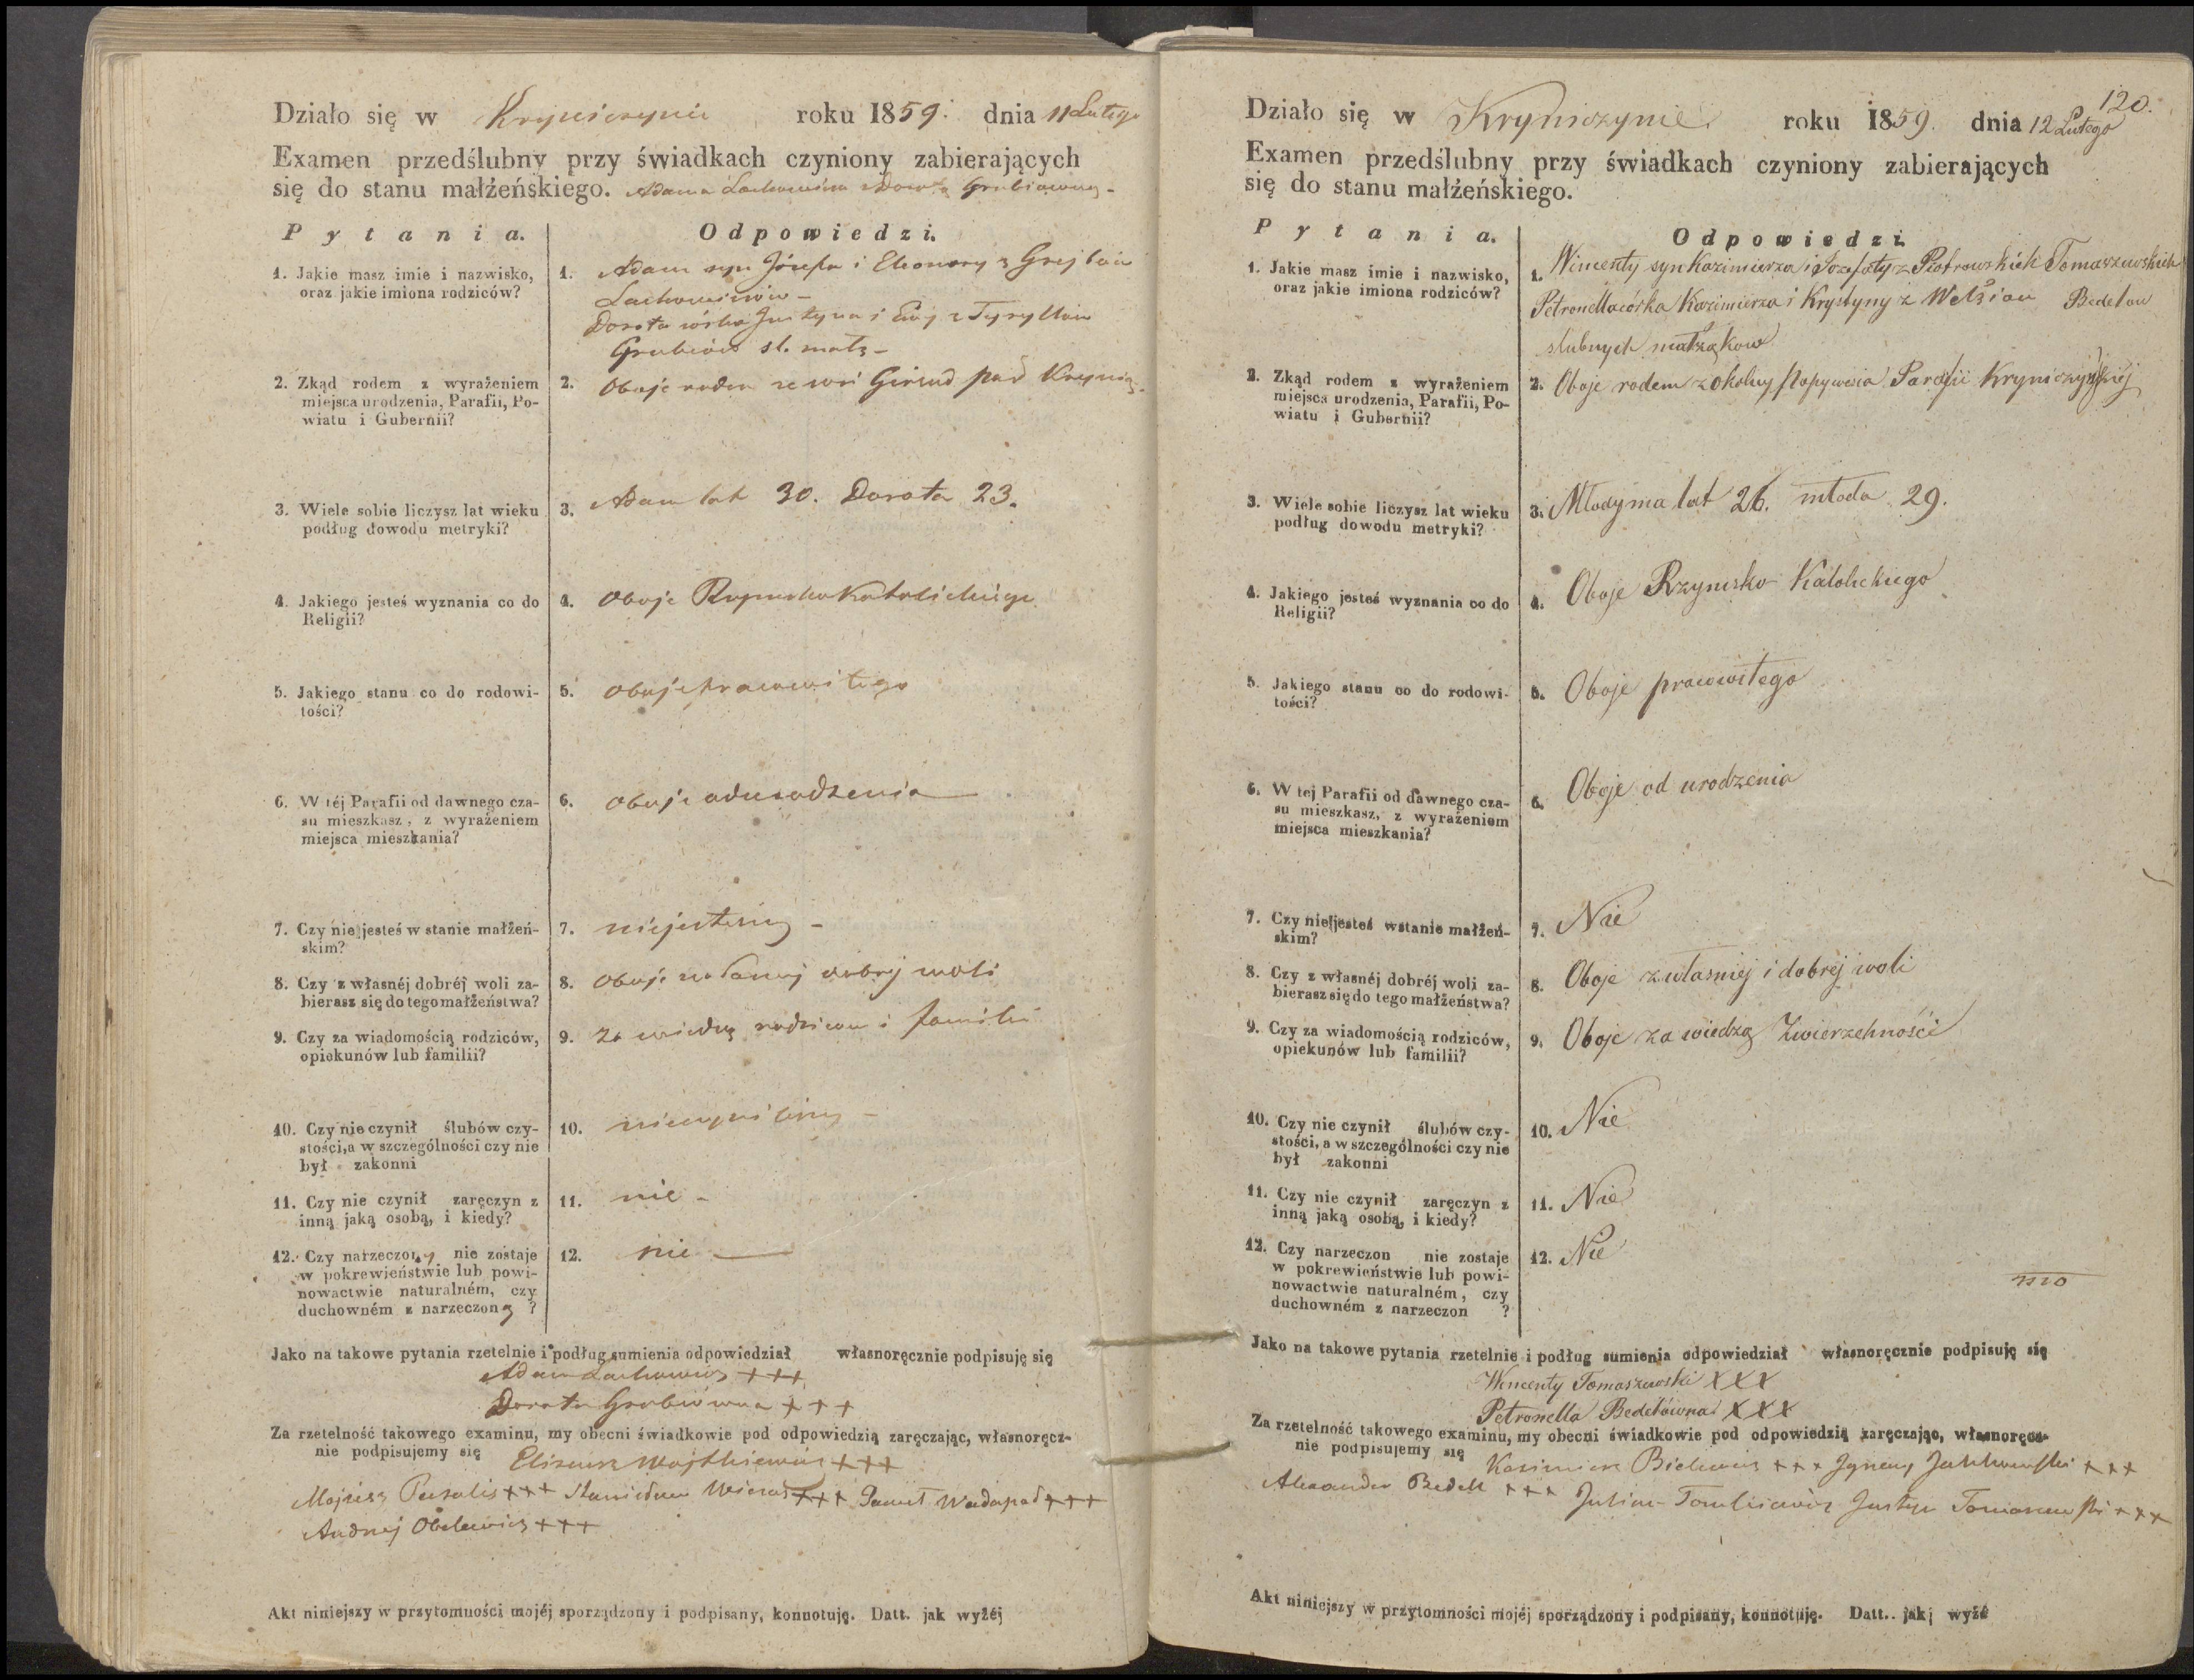 Działo się w Kryniczynie roku 1859. dnia 11 Lutego
Examen przedślubny przy świadkach czyniony zabierających
się do stanu małżeńskiego. Adama Lachowicza Dorotą Grubiowną -
Pytania. Odpowiedzi.
1. Jakie masz imie i nazwisko,
oraz jakie imiona rodziców?
1. Adam syn Józefa i Eleonory z
Lachowiczów -
Dorota córka Justyna i Ewy z
Grubiów sl. małż -
2. Zkąd rodem z wyrażeniem
miejsca urodzenia, Parafii, Po-
wiatu i Gubernii?
2. Oboje rodem ze wsi par Krynicz.
3. Wiele sobie liczysz lat wieku
podług dowodu metryki?
3. Adam lat 30. Dorota 23.
4. Jakiego jesteś wyznania co do
Religii?
4. Oboje Rzymsko Katolickiego
5. Jakiego stanu co do rodowi-
tości?
5. oboje pracowitego
6. W téj Parafii od dawnego cza-
su mieszkasz, z wyrażeniem
miejsca mieszkania?
6. oboje od urodzenia
7. Czy nie jesteś w stanie małżeń-
skim?
7. niejesteśmy -
8. Czy z własnéj dobréj woli za-
bierasz się do tego małżeństwa?
8. Oboje dobrej woli
9. Czy za wiadomością rodziców,
opiekunów lub familii?
9. za wiedzą rodziców i familii
10. Czy nie czynił ślubów czy-
stości, a w szczególności czy nie
był zakonni
10. nieczyniliśmy -
11. Czy nie czynił zaręczyn z
inną jaką osobą, i kiedy?
11. nie -
12. Czy narzeczony nie zostaje
w pokrewieństwie lub powi-
nowactwie naturalném, czy
duchowném z narzeczoną ?
12. nie —
Jako na takowe pytania rzetelnie i podług sumienia odpowiedział własnoręcznie podpisuję się
Adam Lachowicz +++
Dorota Grubiowna +++
Za rzetelność takowego examinu, my obecni świadkowie pod odpowiedzią zaręczając, własnoręcz-
nie podpisujemy się Elizeusz Wojtkiewicz +++
Mojżesz +++ Stanisław +++ Paweł +++
Andrzej +++
Akt niniejszy w przytomności mojéj sporządzony i podpisany, konnotuję. Datt. jak wyżéj
120.
Działo się w Kryniczynie roku 1859. dnia 12 Lutego
Examen przedślubny przy świadkach czyniony zabierających
się do stanu małżeńskiego.
Pytania. Odpowiedzi.
1. Jakie masz imie i nazwisko,
oraz jakie imiona rodziców?
1. Wincenty syn Kazimierza i Jozefaty z Piotrowskich Tomaszewskich
Petronella córka Kazimierza i Krystyny z Bedelow
slubnych małżąkow
2. Zkąd rodem z wyrażeniem
miejsca urodzenia, Parafii, Po-
wiatu i Gubernii?
2. Oboje rodem z okolicy Parafii Kryniczyńskiej
3. Wiele sobie liczysz lat wieku
podług dowodu metryki?
3. Młody ma lat 26. młoda 29.
4. Jakiego jesteś wyznania co do
Religii?
4. Oboje Rzymsko-Katolickiego
5. Jakiego stanu co do rodowi-
tości?
5. Oboje pracowitego
6. W tej Parafii od dawnego cza-
su mieszkasz, z wyrażeniem
miejsca mieszkania?
6. Oboje od urodzenia
7. Czy nie jesteś w stanie małżeń-
skim?
7. Nie
8. Czy z własnéj dobréj woli za-
bierasz się do tego małżeństwa?
8. Oboje z własniej i dobrej woli
9. Czy za wiadomością rodziców,
opiekunów lub familii?
9. Oboje za wiedzą Zwierzchności
10. Czy nie czynił ślubów czy-
stości, a w szczególności czy nie
był zakonni
10. Nie
11. Czy nie czynił zaręczyn z
inną jaką osobą, i kiedy?
11. Nie
12. Czy narzeczon nie zostaje
w pokrewieństwie lub powi-
nowactwie naturalném, czy
duchowném z narzeczon ?
12. Nie
Jako na takowe pytania rzetelnie i podług sumienia odpowiedział własnoręcznie podpisuję się
Wincenty Tomaszewski XXX
Petronella Bedelówna XXX
Za rzetelność takowego examinu, my obecni świadkowie pod odpowiedzią zaręczając, własnoręcz-
nie podpisujemy się Kazimierz +++ Ignacy +++
Alexander Bedell +++ Julian Justyn Tomaszewski +++
Akt niniejszy w przytomności mojéj sporządzony i podpisany, konnotuję. Datt.. jak wyżé